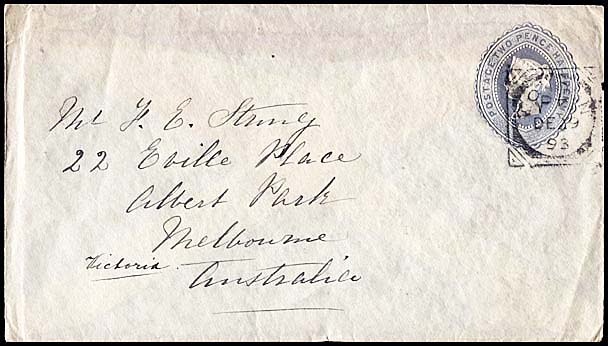 POSTAGE TWO PENCE HALFPENNY
DE 9
93
Mr F. E. Strong
22 Eville Place
Albert Park
Melbourne
Victoria
Australia